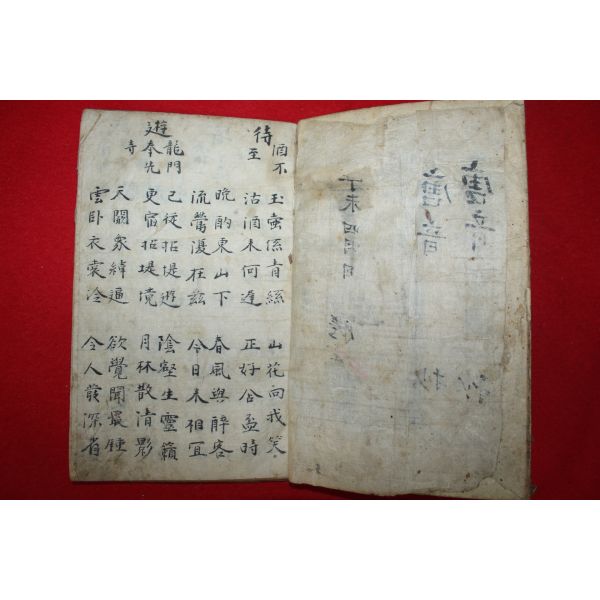 唐音
唐音
丁未四月日
待酒不至
玉壺係青絲 山花向我笑
沽酒來何遲 正好含盃時
晩酌東山下 春風與醉客
流鶯復在玆 今日來相宜
遊龍門奉先寺
已從招提遊 陰壑生靈籟
更宿招提境 月林散清影
天闕象緯逼 欲覺聞晨鍾
雲臥衣裳冷 令人發深省